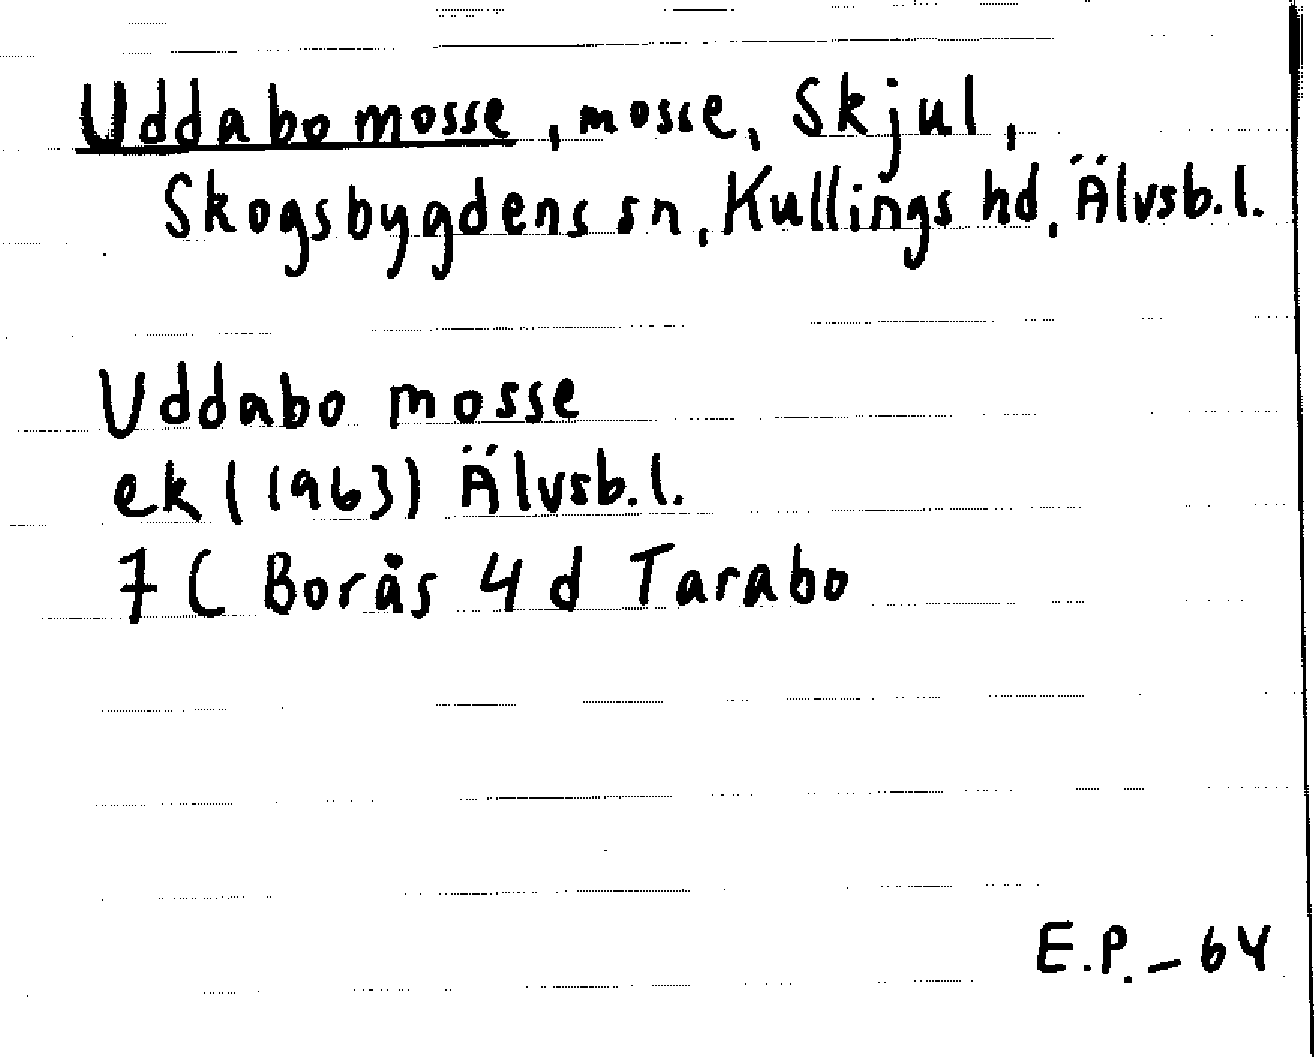 Uddabo mosse, mosse, Skjul,
Skogsbygdens sn, Kullings hd, Älvsb.l.
Uddabo mosse
ek (1963) Älvsb.l.
7C Borås 4d Tarabo
E.P. - 64